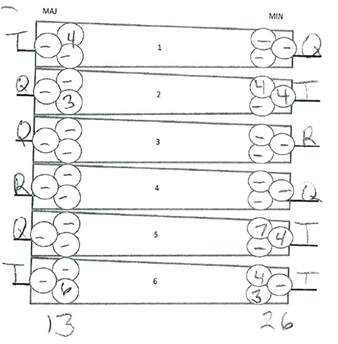 MAJ MIN
T - 4 - 1 - - - Q
Q - - 3 2 4 - 4 T
Q - - - 3 - - - R
R - - - 4 - - - Q
Q - - - 5 7 - 4 T
T - - 6 6 4 3 - T
13 26